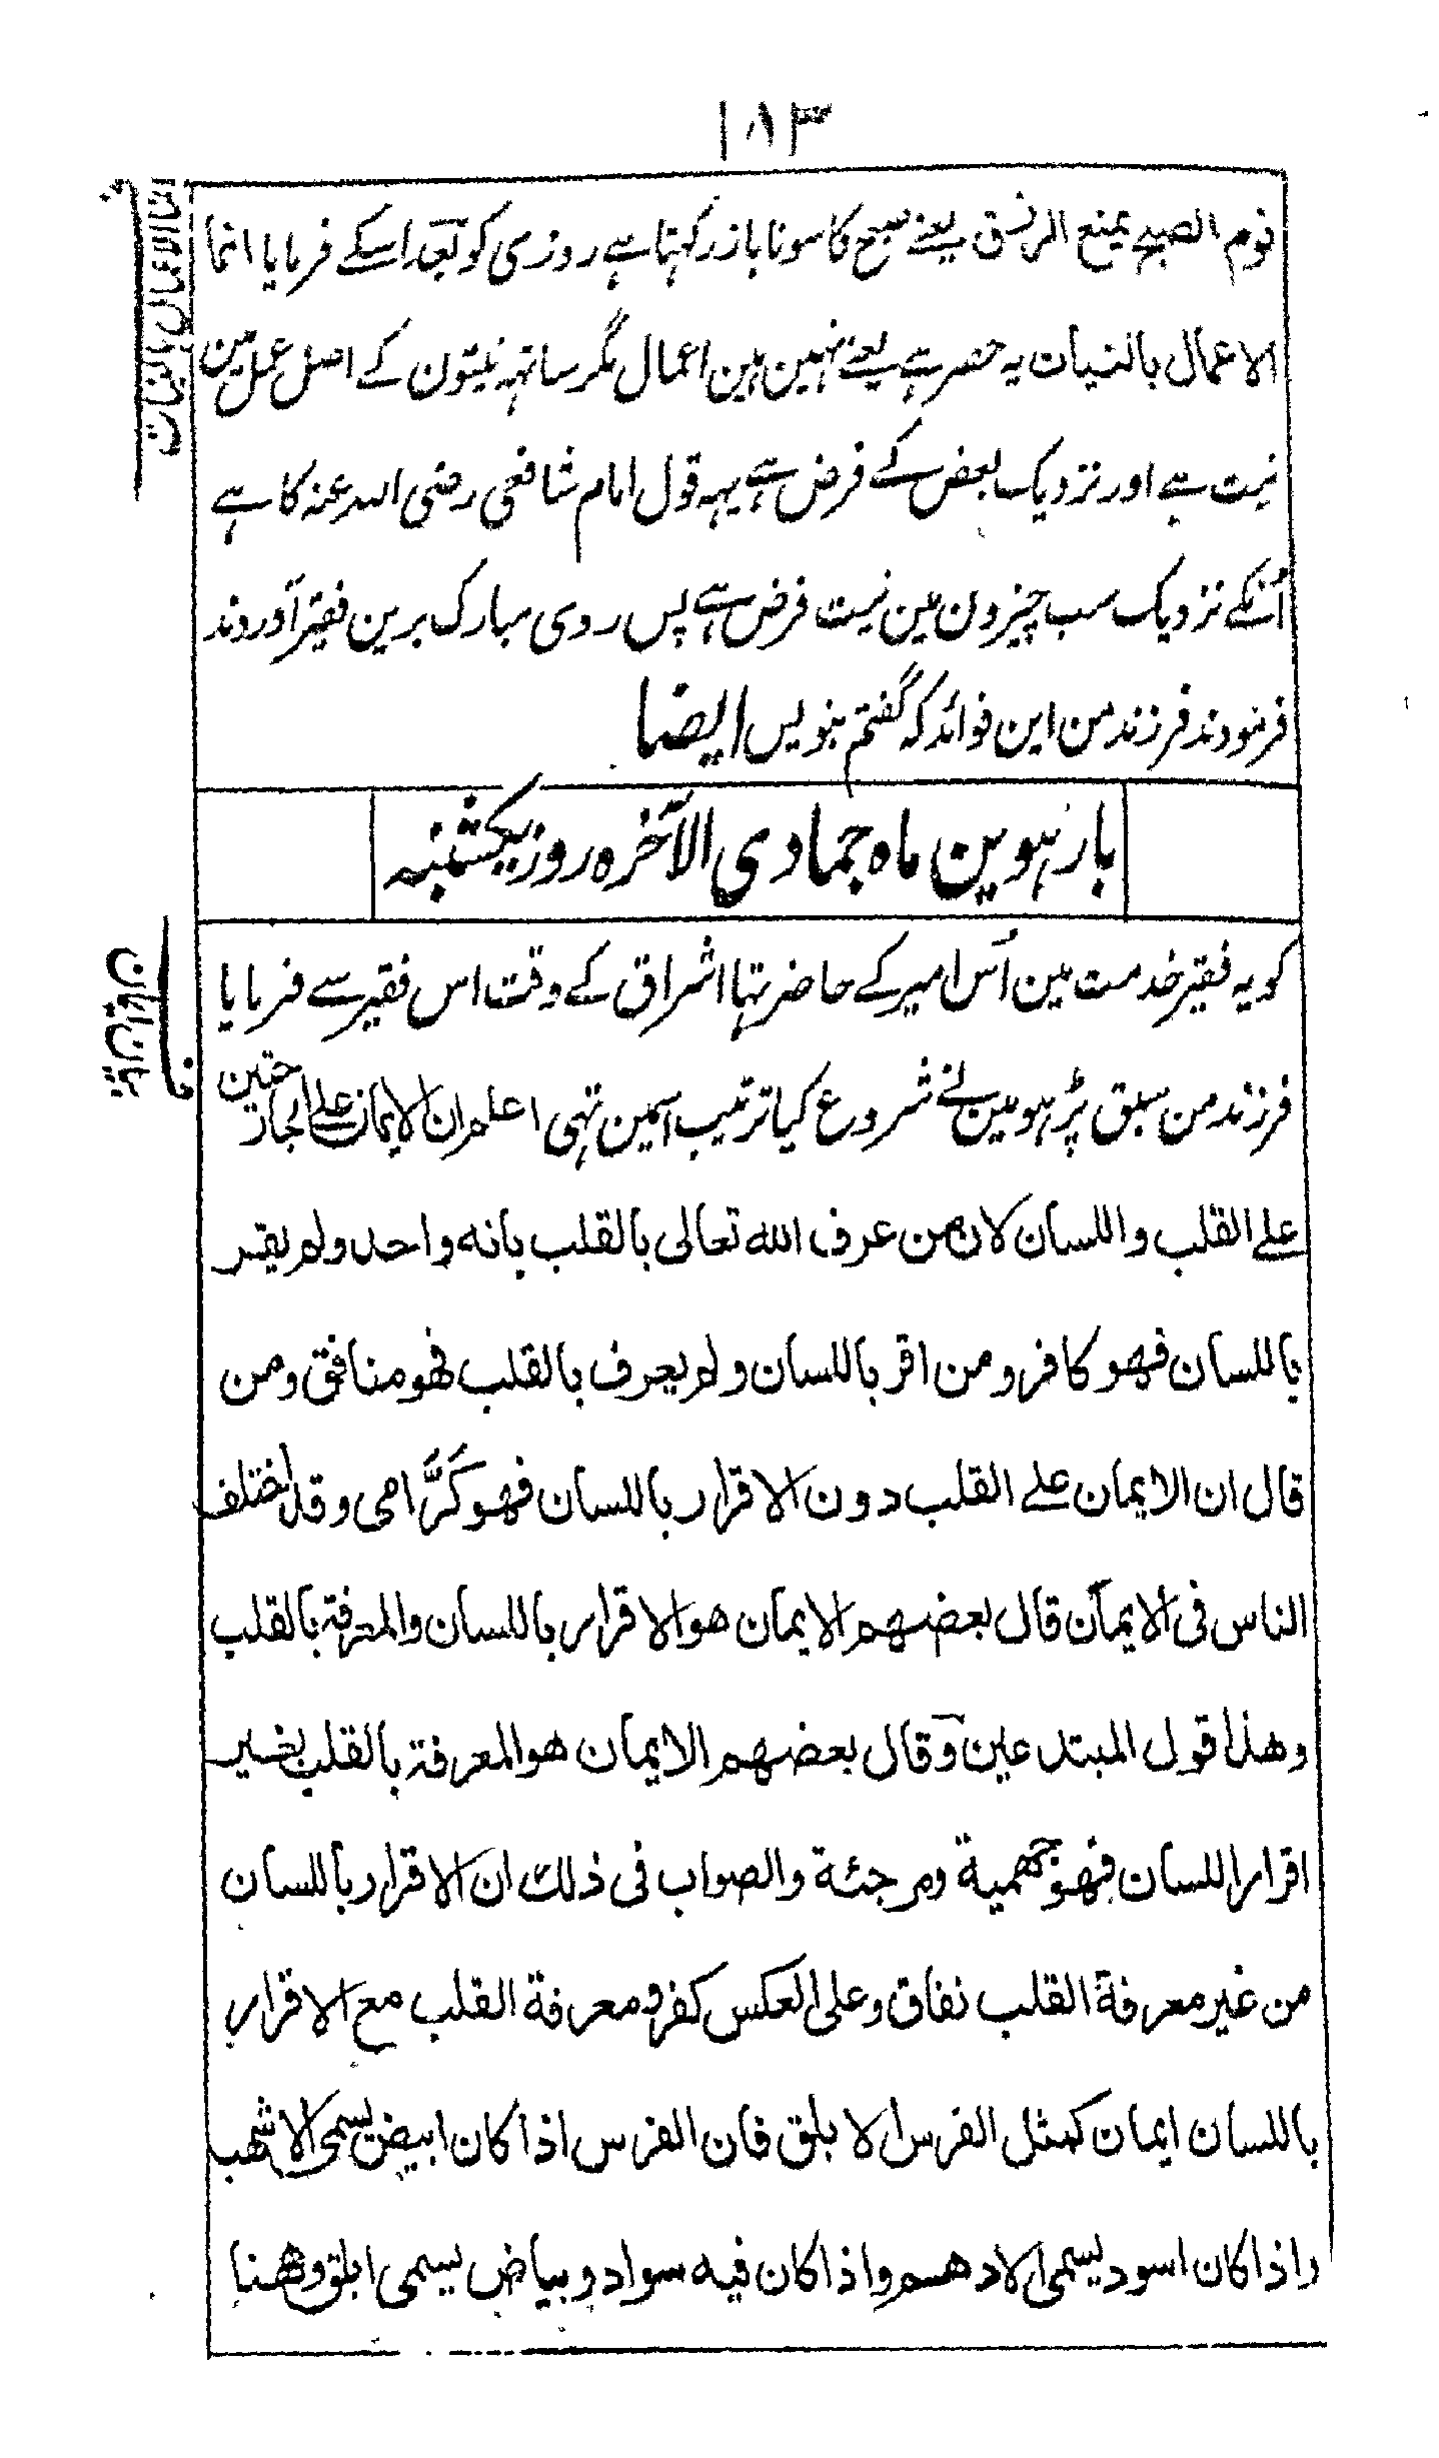 ۱۸۳
نوم الصبح یمنع الرزق یعنے صبح کا سونا باز رکہتا ہے روزی کو بعد اسکے فرمایا انما
الاعمال بالنیات یہ حصر ہے یعنے نہین ہین اعمال مگر ساتہہ نیتون کے اصل عمل مین
نیت ہے اور نزدیک بعض کے فرض ہے یہہ قول امام شافعی رضی اللہ عنہ کا ہے
اُنکے نزدیک سب چیزون مین نیت فرض ہے پس روی مبارک برین فقیر آوردند
فرمودند فرزند من این فوائد کہ گفتم بنویس ایضا
بارہوین ماہ جمادی الآخرہ روز یکشنبہ
کو یہ فقیر خدمت مین اُس امیر کے حاضر تہا اشراق کے وقت اس فقیر سے فرمایا
فرزند من سبق پڑہو مین نے شروع کیا ترتیب اسمین تہی اعلم ان الایمان علی الجارحتین
علے القلب واللسان لان من عرف الله تعالی بالقلب بانه واحد ولم یقر
باللسان فهو کافر ومن اقر باللسان ولم یعرف بالقلب فهو منافق ومن
قال ان الایمان علے القلب دون الاقرار باللسان فهو کَرَّامی وقد اختلف
الناس فی الایمان قال بعضهم الایمان هو الاقرار باللسان والمعرفة بالقلب
وهذا قول المبتدعین وقال بعضهم الایمان هو المعرفة بالقلب بغیر
اقرار اللسان فهو جهمیة ومرجئة والصواب فی ذلك ان الاقرار باللسان
من غیر معرفة القلب نفاق وعلی العکس کفر ومعرفة القلب مع الاقرار
باللسان ایمان کمثل الفرس الابلق فان الفرس اذا کان ابیض یسمی الاشهب
واذا کان اسود یسمی الادهم واذا کان فیه سواد وبیاض یسمی ابلق وهنا